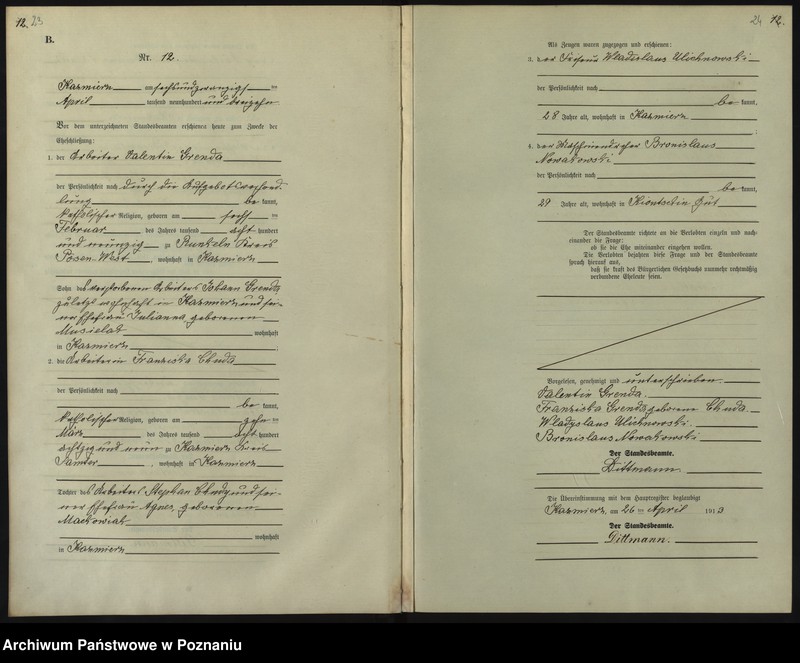 12. 23
B.
Nr. 12
Kazmierz am sechsundzwanzigsten
April tausend neunhundert und dreizehn
Vor dem unterzeichneten Standesbeamten erschienen heute zum Zwecke der
Eheschließung:
1. der Arbeiter Valentin Grenda
der Persönlichkeit nach durch die Aufgebotsverhand-
lung be kannt,
katholischer Religion, geboren am
Februar des Jahres tausend acht hundert
und neunzig zu Kreis
Posen-West, wohnhaft in Kazmierz
Sohn des verstorbenen Arbeiters Johann Grenda
zuletzt wohnhaft in Kazmierz und sei-
ner Ehefrau Julianna, geborenen
Musielak wohnhaft
in Kazmierz
2. die Arbeiterin Franziska Chuda
der Persönlichkeit nach
be kannt,
katholischer Religion, geboren am zehn ten
März des Jahres tausend acht hundert
achtzig und neun zu Kazmierz Kreis
Samter, wohnhaft in Kazmierz
Tochter des Arbeiters Stephan Chudy und sei-
ner Ehefrau Agnes, geborenen
Maćkowiak
wohnhaft
in Kazmierz
24 12.
Als Zeugen waren zugezogen und erschienen:
3. der Wladislaus Ulichnowski
der Persönlichkeit nach
be kannt,
28 Jahre alt, wohnhaft in Kazmierz
;
4. der Bronislaus
Nowakowski
der Persönlichkeit nach
be kannt,
29 Jahre alt, wohnhaft in Gut
Der Standesbeamte richtete an die Verlobten einzeln und nach-
einander die Frage:
ob sie die Ehe miteinander eingehen wollen.
Die Verlobten bejahten diese Frage und der Standesbeamte
sprach hierauf aus,
daß sie kraft des Bürgerlichen Gesetzbuchs nunmehr rechtmäßig
verbundene Eheleute seien.
Vorgelesen, genehmigt und unterschrieben.
Valentin Grenda.
Franziska Grenda geborene Chuda.
Wladyslaus Ulichnowski.
Bronislaus Nowakowski
Der Standesbeamte.
Dittmann.
Die Übereinstimmung mit dem Hauptregister beglaubigt
Kazmierz, am 26 ten April 1913
Der Standesbeamte.
Dittmann.
Archiwum Państwowe w Poznaniu